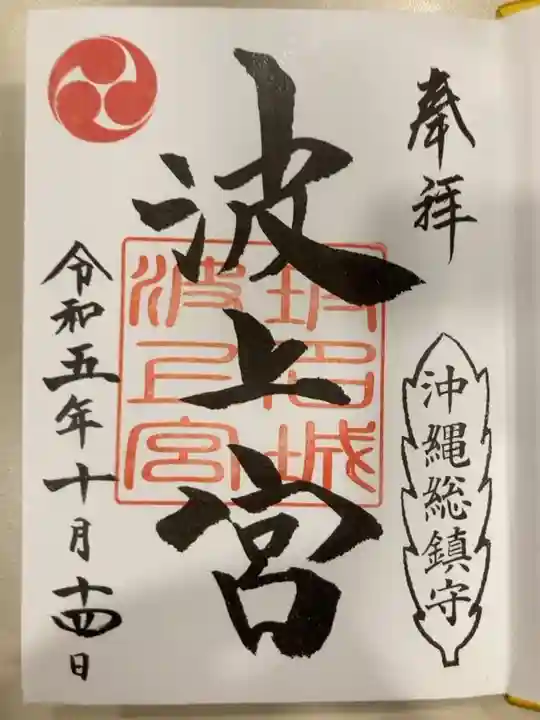 奉拝
沖縄総鎮守
波上宮
那覇城
波上宮
令和五年十月十四日